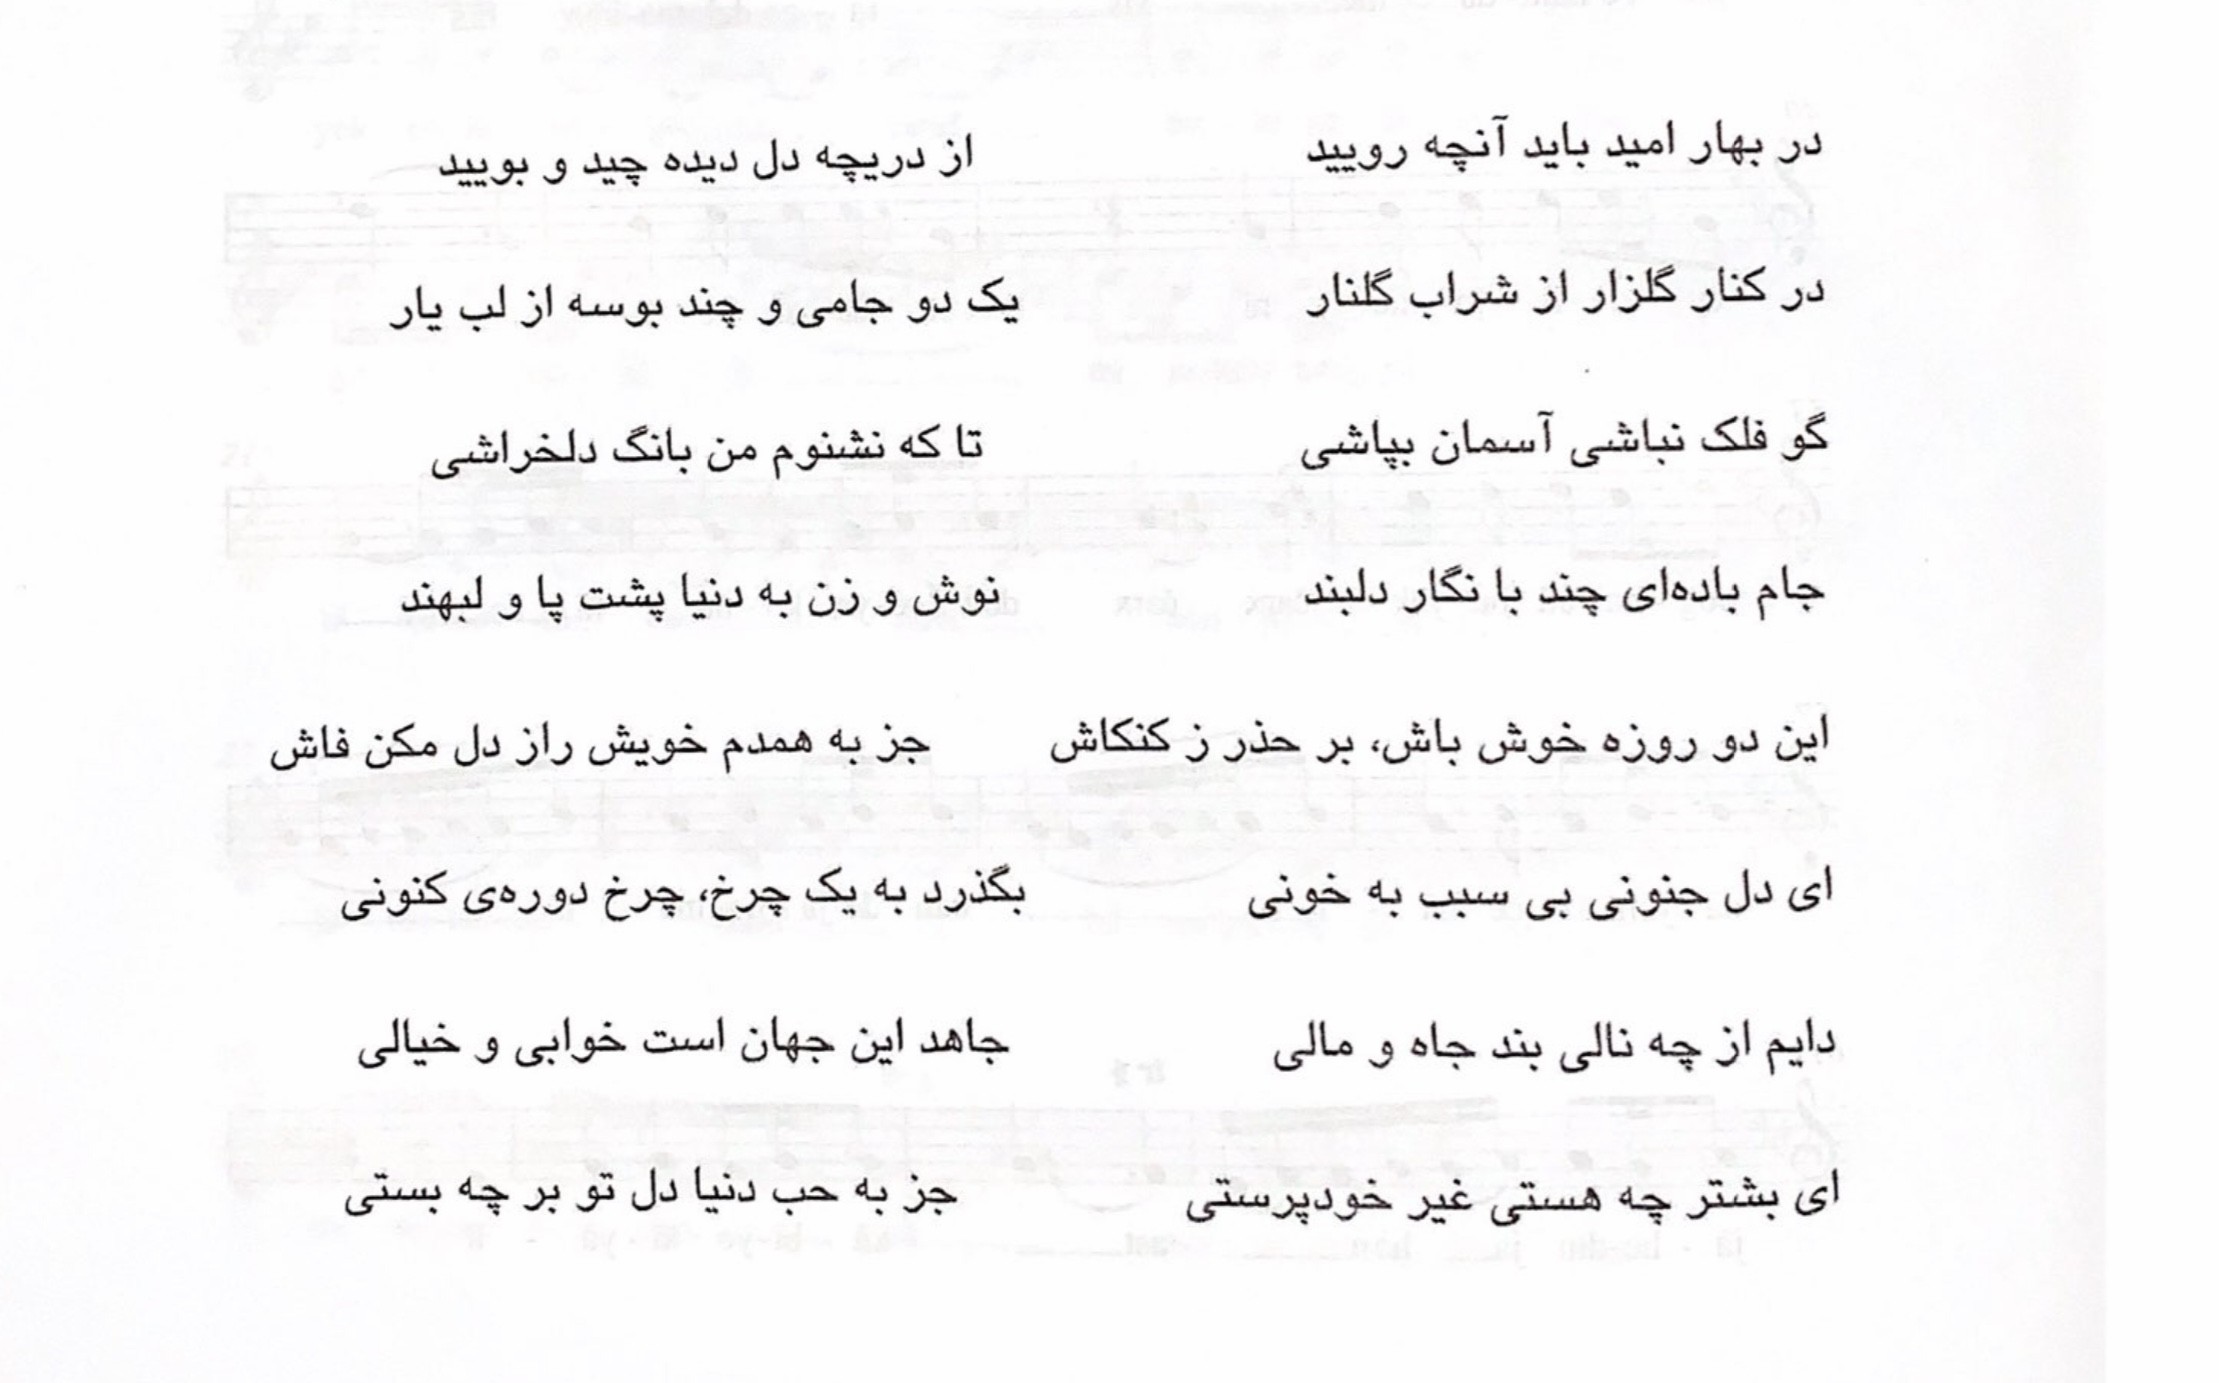 در بهار امید باید آنچه رویید از دریچه دل دیده چید و بویید
در کنار گلزار از شراب گلنار یک دو جامی و چند بوسه از لب یار
گو فلک نباشی آسمان بپاشی تا که نشنوم من بانگ دلخراشی
جام باده‌ای چند با نگار دلبند نوش و زن به دنیا پشت پا و لبهند
این دو روزه خوش باش، بر حذر ز کنکاش جز به همدم خویش راز دل مکن فاش
ای دل جنونی بی سبب به خونی بگذرد به یک چرخ، چرخ دوره‌ی کنونی
دایم از چه نالی بند جاه و مالی جاهد این جهان است خوابی و خیالی
ای بشتر چه هستی غیر خودپرستی جز به حب دنیا دل تو بر چه بستی